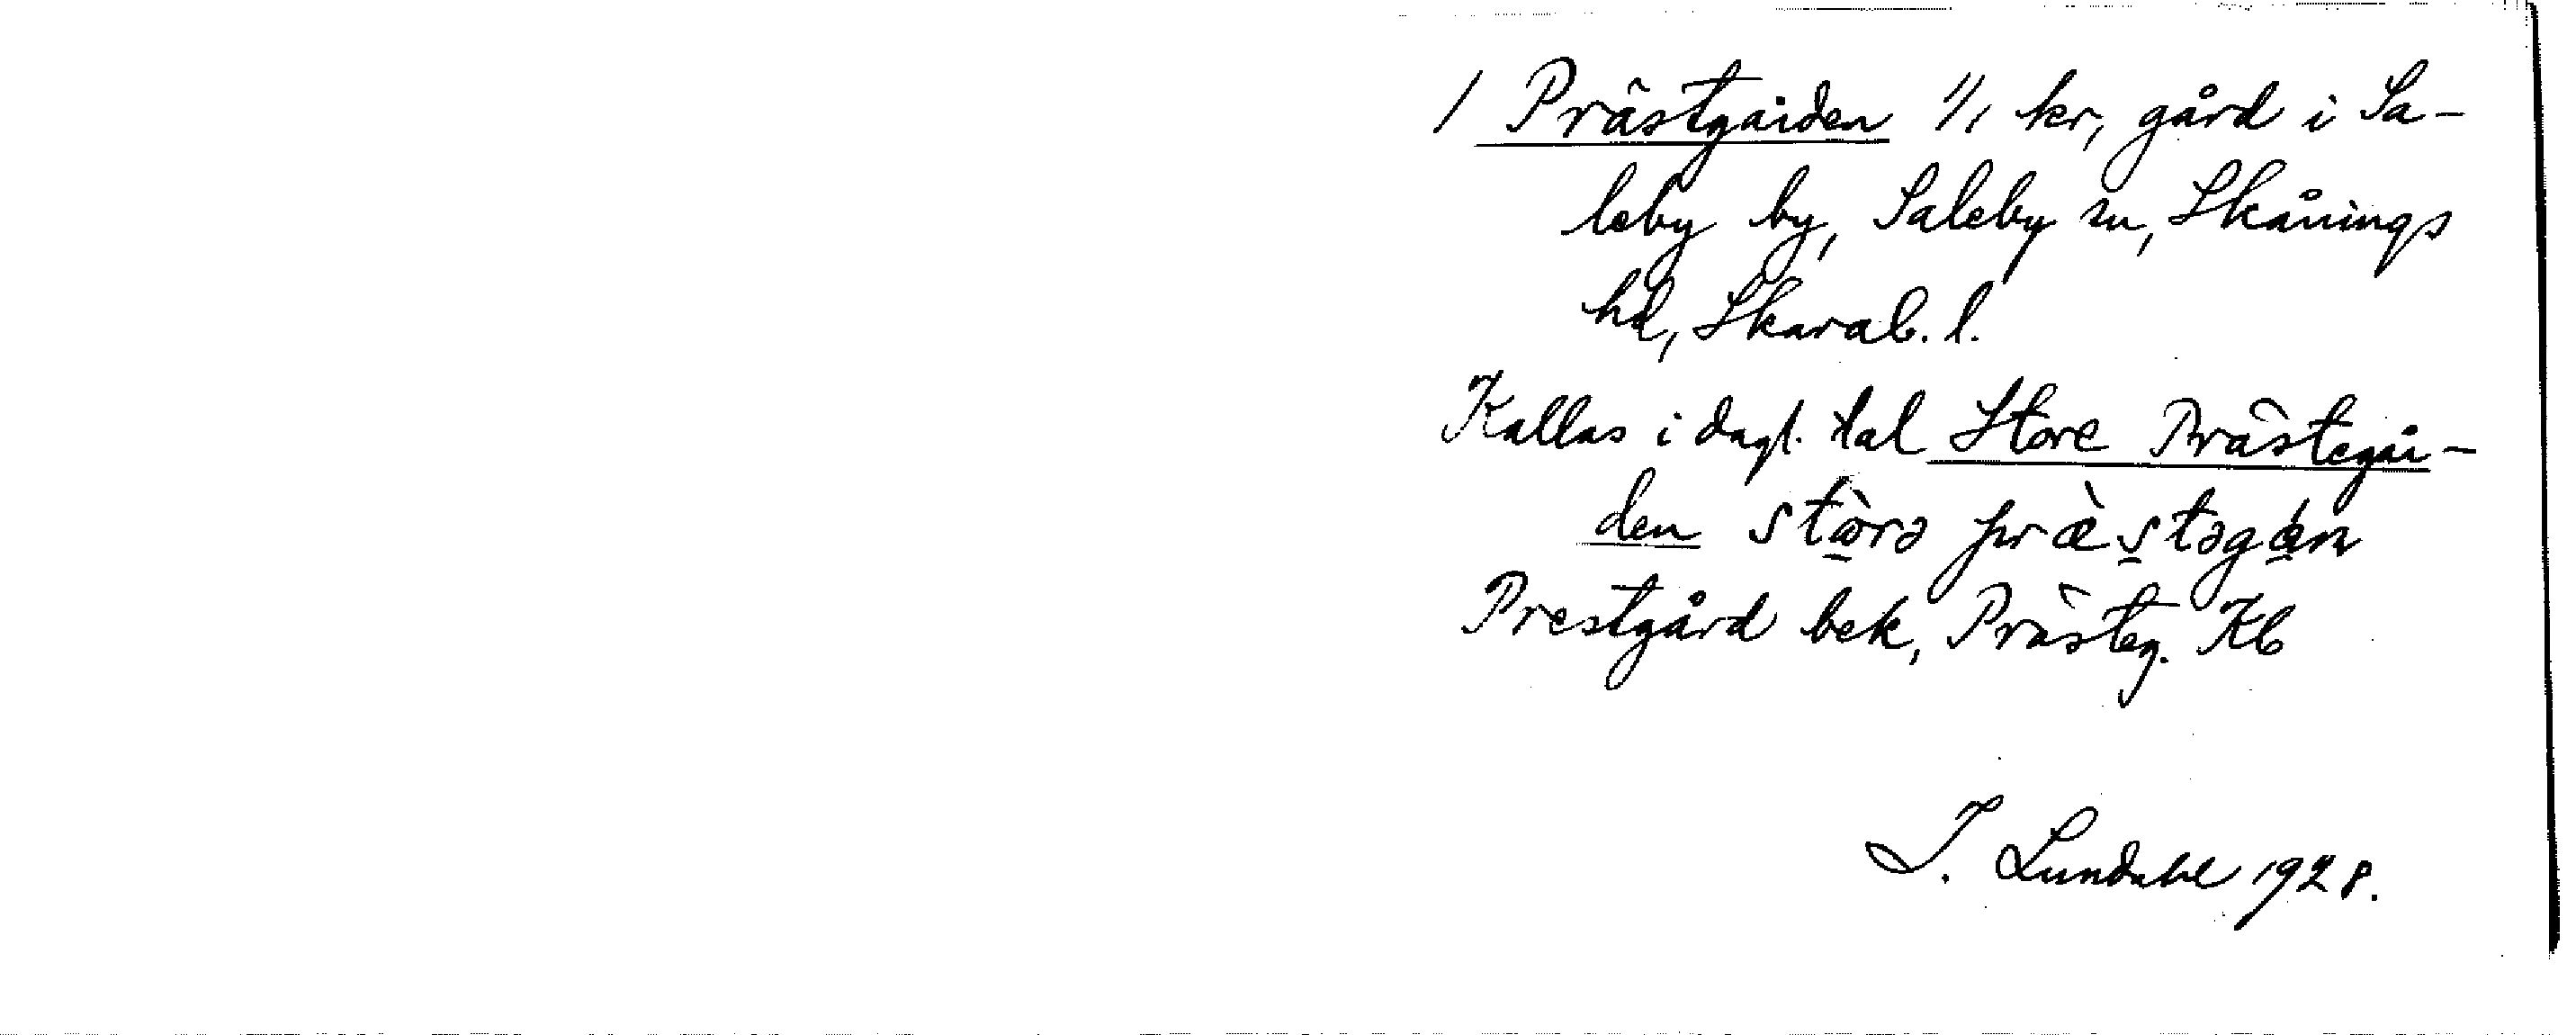 / Prästgården 1/1 kr, gård i Sa-
leby by, Saleby sn, Skånings
hd, Skarab. l.
Kallas i dagl. tal Store Prästegår-
den
Prestgård bek, Prästeg. Kb
I. Lundahl 1928.